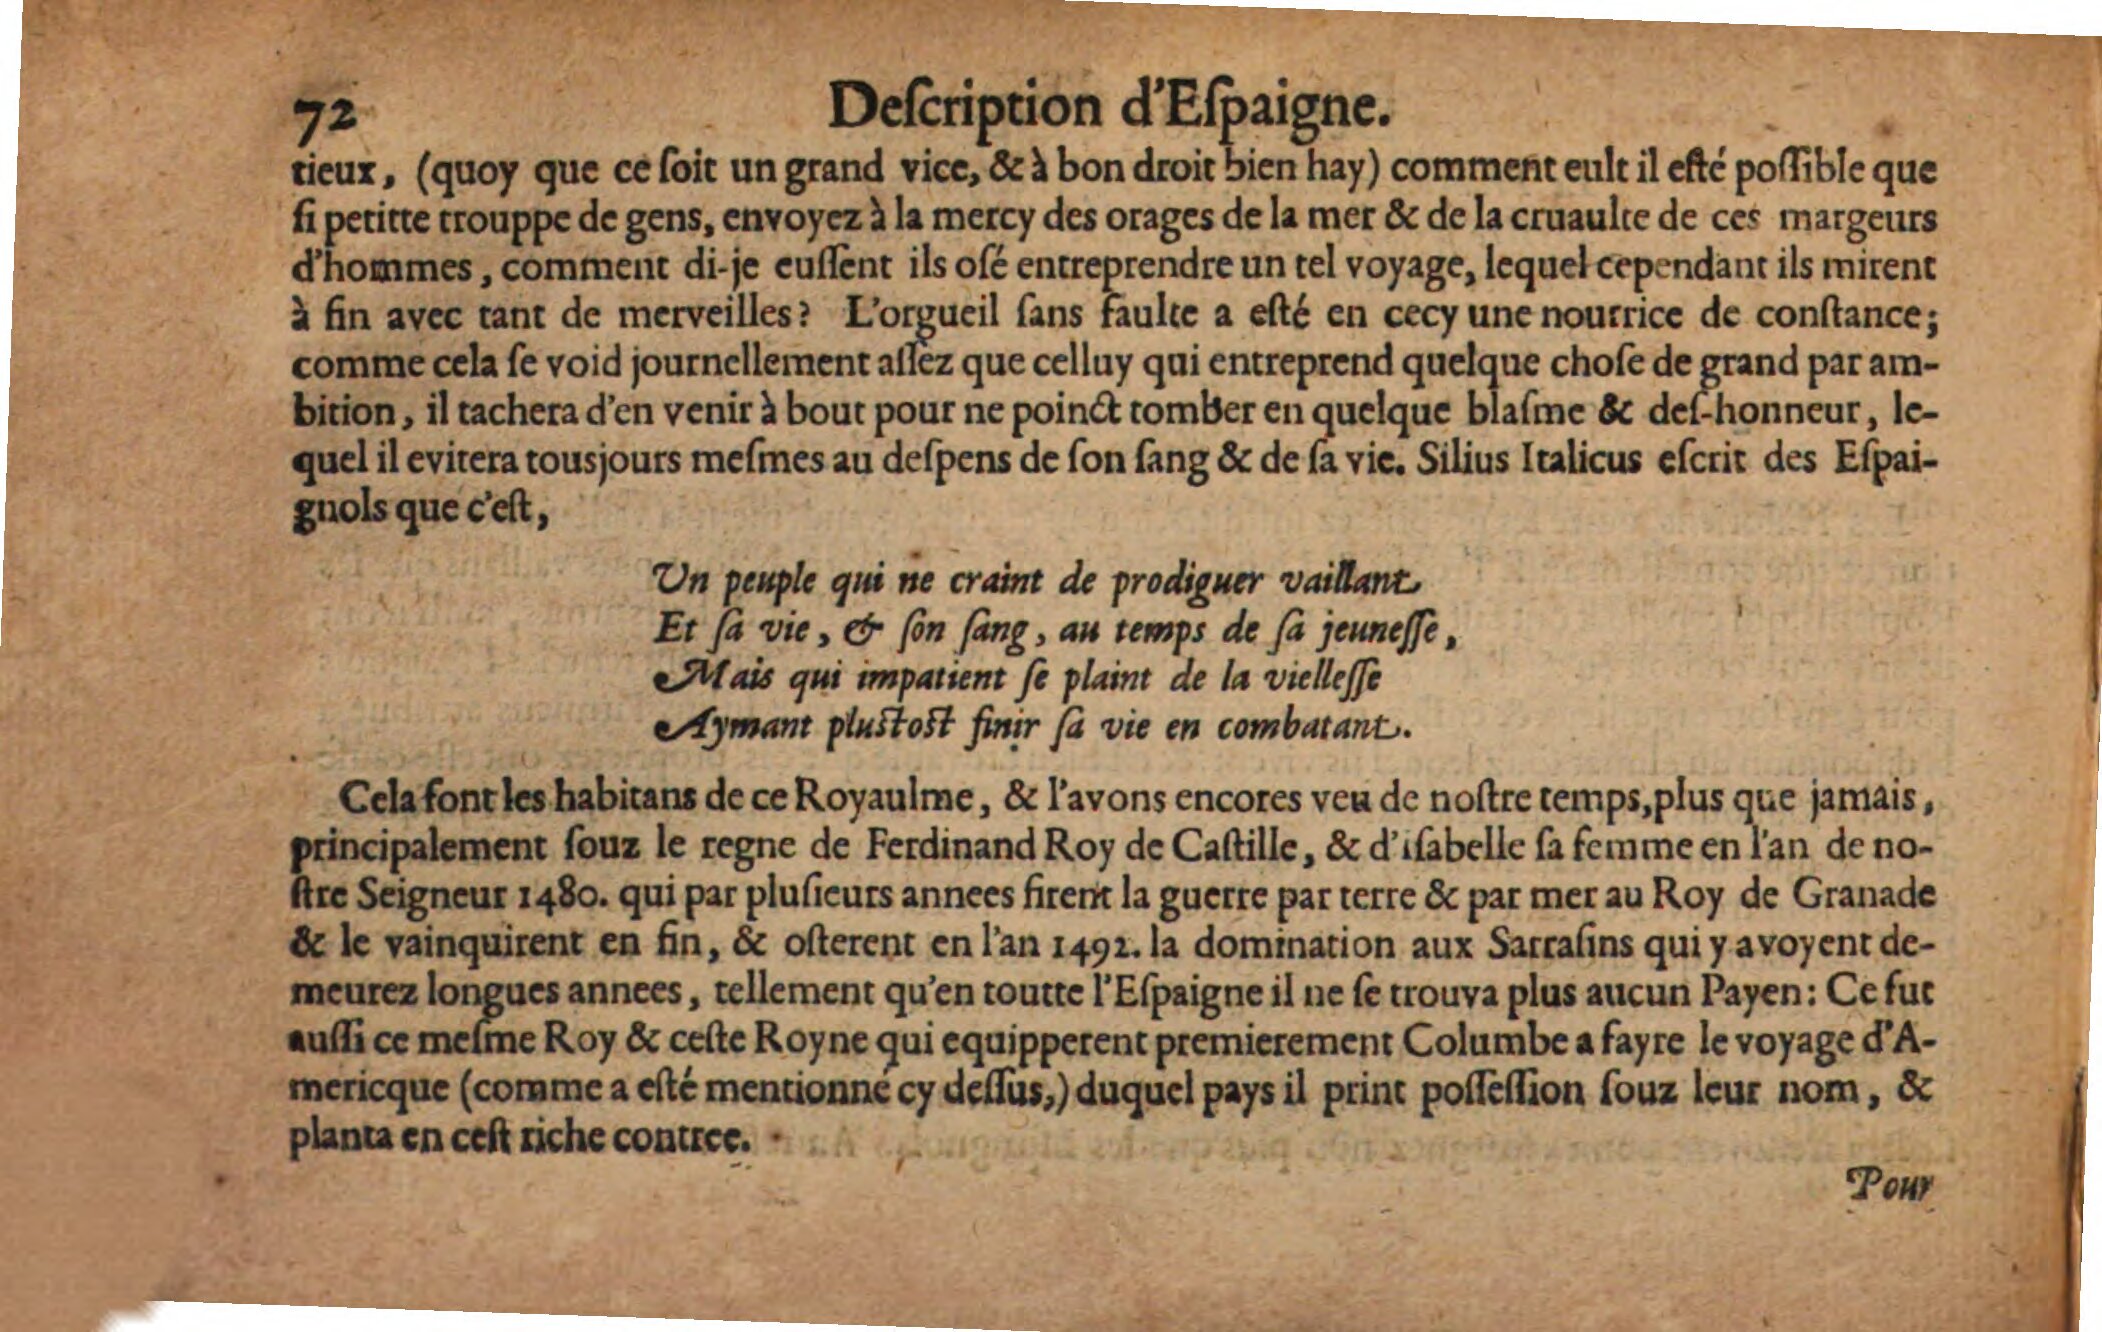 72 Deſcription d'Eſpaigne.
tieux, (quoy que ce ſoit un grand vice, & à bon droit bien hay) comment eult il eſté poſſible que
ſi petitte trouppe de gens, envoyez à la mercy des orages de la mer & de la cruaulte de ces margeurs
d'hommes, comment di-je euſſent ils oſé entreprendre un tel voyage, lequel cependant ils mirent
à fin avec tant de merveilles? L'orgueil ſans faulte a eſté en cecy une nourrice de conſtance;
comme cela ſe void journellement aſſez que celluy qui entreprend quelque choſe de grand par am-
bition, il tachera d'en venir à bout pour ne poinct tomber en quelque blaſme & deſ-honneur, le-
quel il evitera tousjours meſmes au deſpens de ſon ſang & de ſa vie. Silius Italicus eſcrit des Eſpai-
gnols que c'eſt,
Un peuple qui ne craint de prodiguer vaillant
Et ſa vie, & ſon ſang, au temps de ſa jeuneſſe,
Mais qui impatient ſe plaint de la vielleſſe
Aymant pluſtoſt finir ſa vie en combatant.
Cela font les habitans de ce Royaulme, & l'avons encores veu de noſtre temps, plus que jamais,
principalement ſouz le regne de Ferdinand Roy de Caſtille, & d'iſabelle ſa femme en l'an de no-
ſtre Seigneur 1480. qui par pluſieurs annees firent la guerre par terre & par mer au Roy de Granade
& le vainquirent en fin, & oſterent en l'an 1492. la domination aux Sarraſins qui y avoyent de-
meurez longues annees, tellement qu'en toutte l'Eſpaigne il ne ſe trouva plus aucun Payen: Ce fut
auſſi ce meſme Roy & ceſte Royne qui equipperent premierement Columbe a fayre le voyage d'A-
mericque (comme a eſté mentionné cy deſſus,) duquel pays il print poſſeſſion ſouz leur nom, &
planta en ceſt riche contree.
Pour